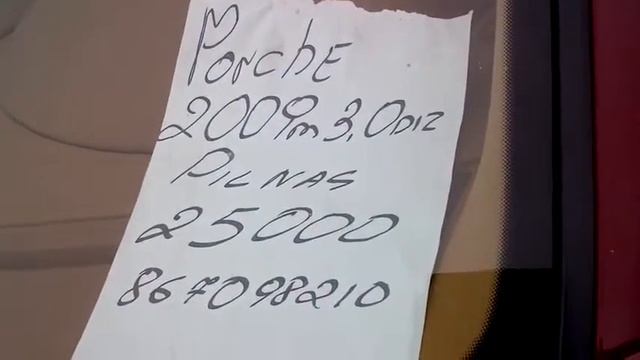 PORCHE
2009m 3,0 DIZ
PILNAS
25000
867098210